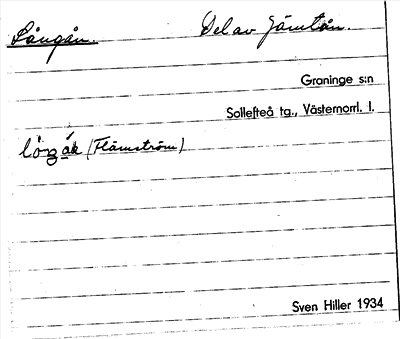 Långån. Del av Jämtån.
Graninge s:n
Sollefteå tg., Västernorrl. l.
(Flåmström)
Sven Hiller 1934